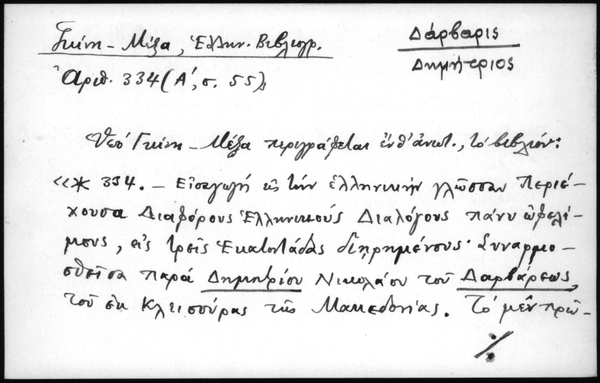 Γκίνη - Μέξα, Ἑλλην. Βιβλιογρ.
Δάρβαρις
Δημήτριος
Ἀριθ. 334 (Α΄, σ. 55).
Ὑπό Γκίνη - Μέξα περιγράφεται ἐνθ' ἀνωτ., τό βιβλίον:
«* 334. - Εἰσαγωγή εἰς τήν ἑλληνικήν γλῶσσαν Περιέ-
χουσα Διαφόρους Ἑλληνικούς Διαλόγους πάνυ ὠφελί-
μους, εἰς τρεῖς Ἑκατοντάδας διῃρημένους· Συναρμο-
σθεῖσα παρά Δημητρίου Νικολάου τοῦ Δαρβάρεως,
τοῦ ἐκ Κλεισούρας τῆς Μακεδονίας. Τό μέν πρῶ-
·/·